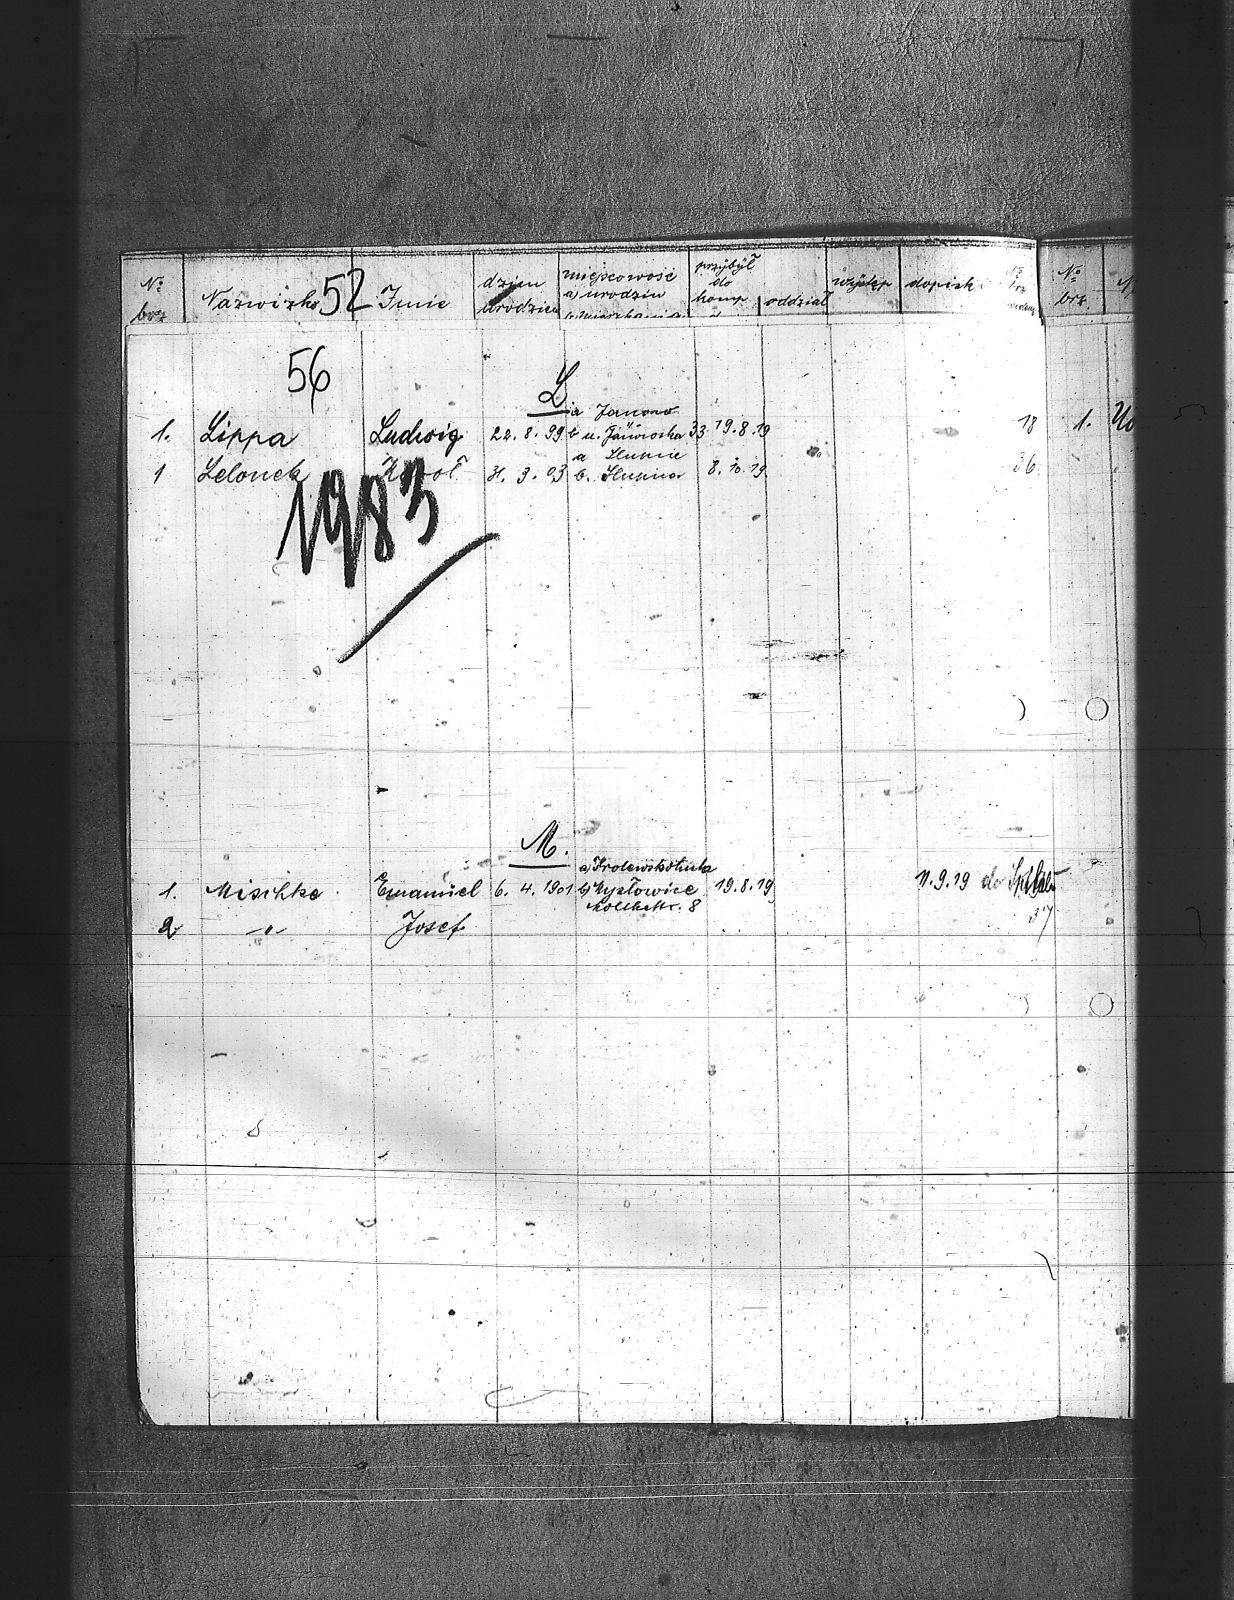 No brz Nazwisko 52 Imie dzien urodzin miejscowość a) urodzin przybył do komp oddział występ dopiski No brz
56
L
a Janowo
1. Lippa Ludwig 22. 8. 99 b u. 33 19.8.19 18 1.
a Slupnie
1 Lelonek Karol 31. 3. 03 b. Slupna 8. 10. 19 36
1983
M.
a) Krolewskohuta
1. Mischke Emanuel 6. 4. 1901 b) Mysłowice 19.8.19 11.9.19 do Szpitalu
Moltkestr. 8
2 -"- Josef 37